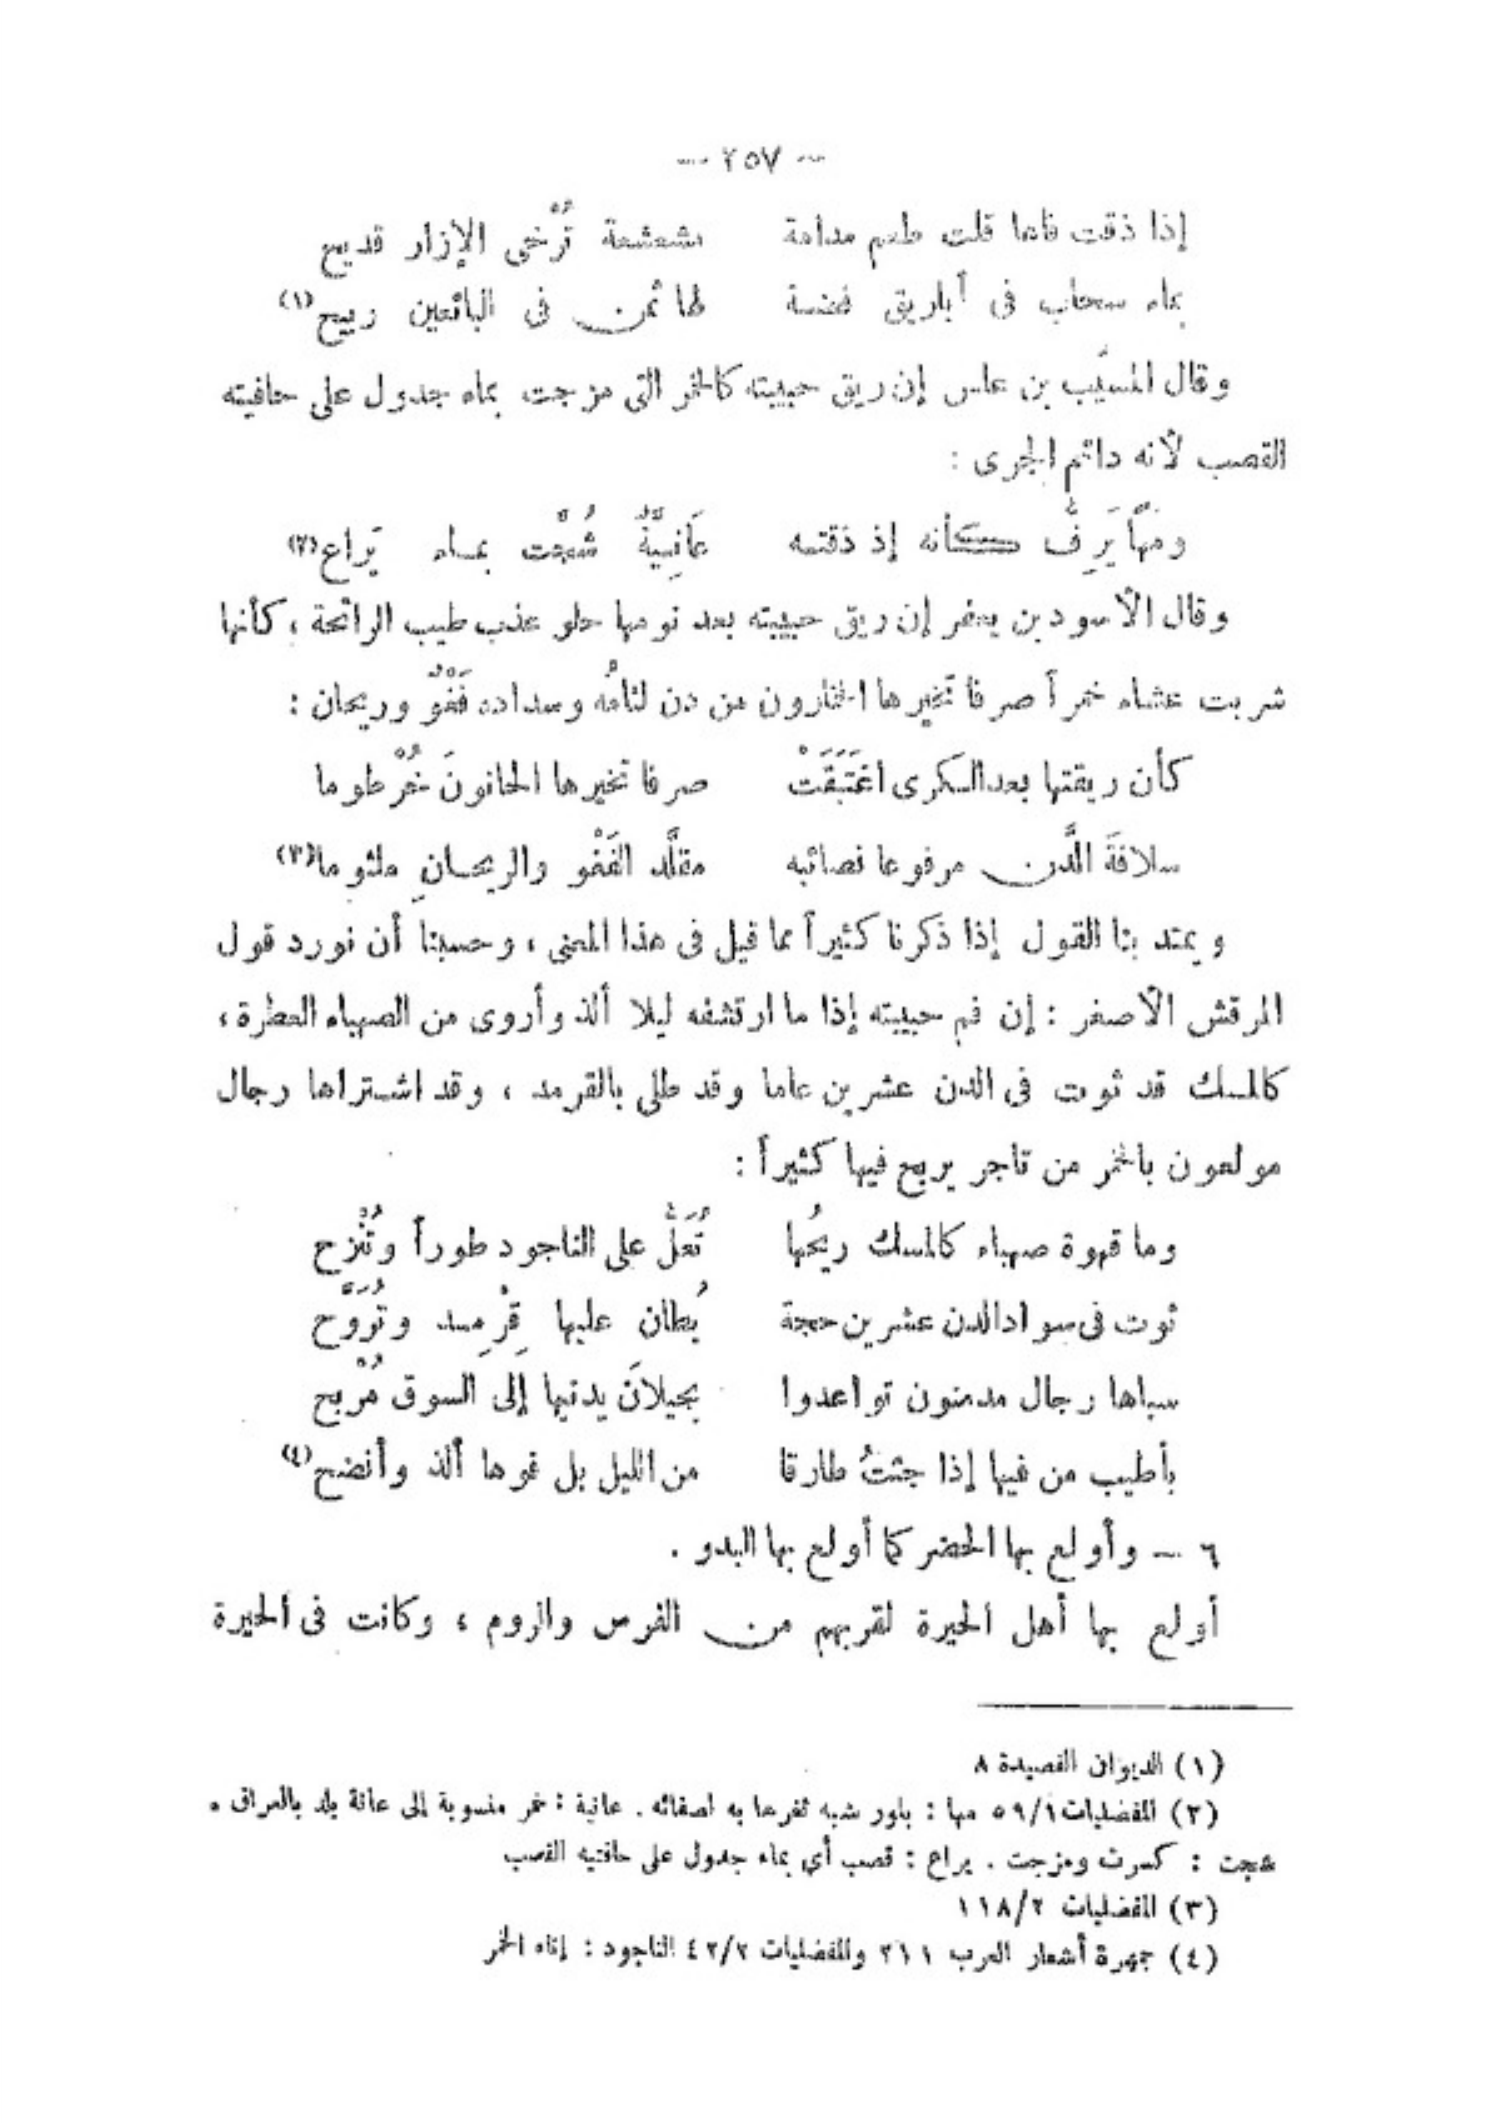 — ٢٥٧ —
إذا ذقت فاها قلت طعم مدامة مشعشعة تُرْخى الإزار قديح
بماء سحاب فى أباريق فضة لها ثمن فى البائعين ربيح (١)
وقال المسيَّب بن علس إن ريق حبيبته كالخمر التى مزجت بماء جدول على حافيته
القصب لأنه دائم الجرى :
ومَهًا يَرِفُّ كأنه إذ ذقته عَانِيَّةٌ شُجَّت بماء يَراع (٢)
وقال الأسود بن يعفر إن ريق حبيبته بعد نومها حلو عذب طيب الرائحة ، كأنها
شربت عشاء خمراً صرفا تخيرها الخمارون من دن لثامُه وسداده فَغْوٌ وريحان :
كأن ريقتها بعد الكرى اغتَبَقَتْ صرفا تخيرها الحانونَ خُرْطوما
سلافةَ الدَّن مرفوعا نصائبه مقلَّد الفَغْو والريحانِ ملثوما (٣)
ويمتد بنا القول إذا ذكرنا كثيراً مما قيل فى هذا المعنى ، وحسبنا أن نورد قول
المرقش الأصغر : إن فم حبيبته إذا ما ارتشفه ليلا ألذ وأروى من الصهباء العطرة ،
كالمسك قد ثوت فى الدن عشرين عاما وقد طلى بالقرمد ، وقد اشتراها رجال
مولعون بالخمر من تاجر يربح فيها كثيراً :
وما قهوة صهباء كالمسك ريحُها تُعَلُّ على الناجود طوراً وتُنْزح
ثوت فى سواد الدن عشرين حجة يُطان عليها قِرْمِد وتُرَوَّح
سباها رجال مدمنون تواعدوا بجيلانَ يدنيها إلى السوق مُرْبح
بأطيب من فيها إذا جئتُ طارقا من الليل بل فوها ألذ وأنضح (٤)
٦ — وأولع بها الحضر كما أولع بها البدو .
أولع بها أهل الحيرة لقربهم من الفرس والروم ، وكانت فى الحيرة
(١) الديوان القصيدة ٨
(٢) المفضليات ٥٩/١ مها : بلور شبه ثغرها به لصفائه . عانية : خمر منسوبة إلى عانة بلد بالعراق .
شجت : كسرت ومزجت . يراع : قصب أي بماء جدول على حافتيه القصب
(٣) المفضليات ١١٨/٢
(٤) جمهرة أشعار العرب ٢١١ والمفضليات ٤٢/٢ الناجود : إناء الخمر